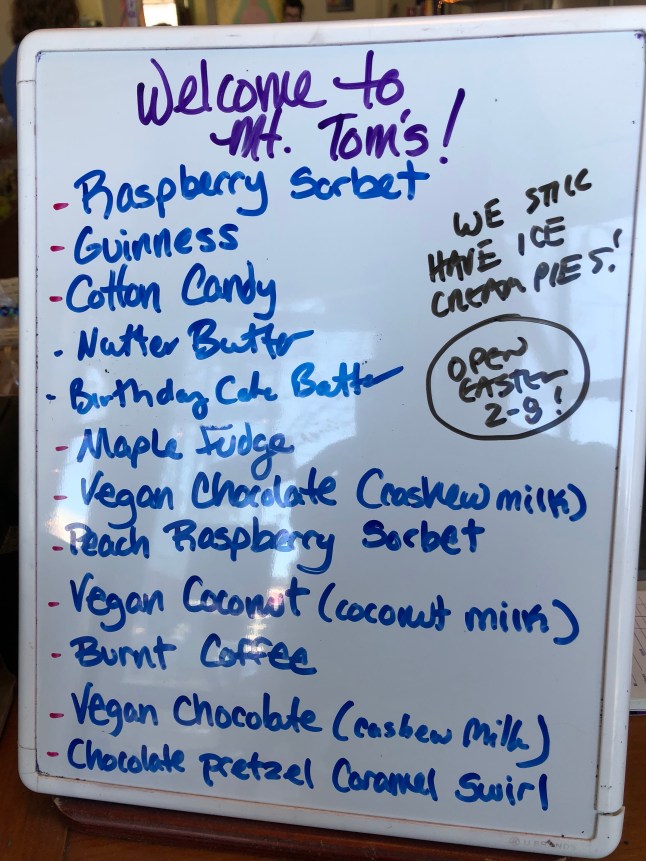 Welcome to
Mt. Tom's!
- Raspberry Sorbet
- Guinness
- Cotton Candy
- Nutter Butter
- Birthday Cake Batter
- Maple Fudge
- Vegan Chocolate (cashew milk)
- Peach Raspberry Sorbet
- Vegan Coconut (coconut milk)
- Burnt Coffee
- Vegan Chocolate (cashew milk)
- Chocolate pretzel Caramel Swirl
WE STILL
HAVE ICE
CREAM PIES!
OPEN
EASTER
2-9!
U BRANDS